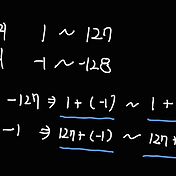 1 ~ 127
-1 ~ -128
-127 ⇒ 1 + (-1) ~ 1 +
-1 ⇒ 127 + (-1) ~ 127 +